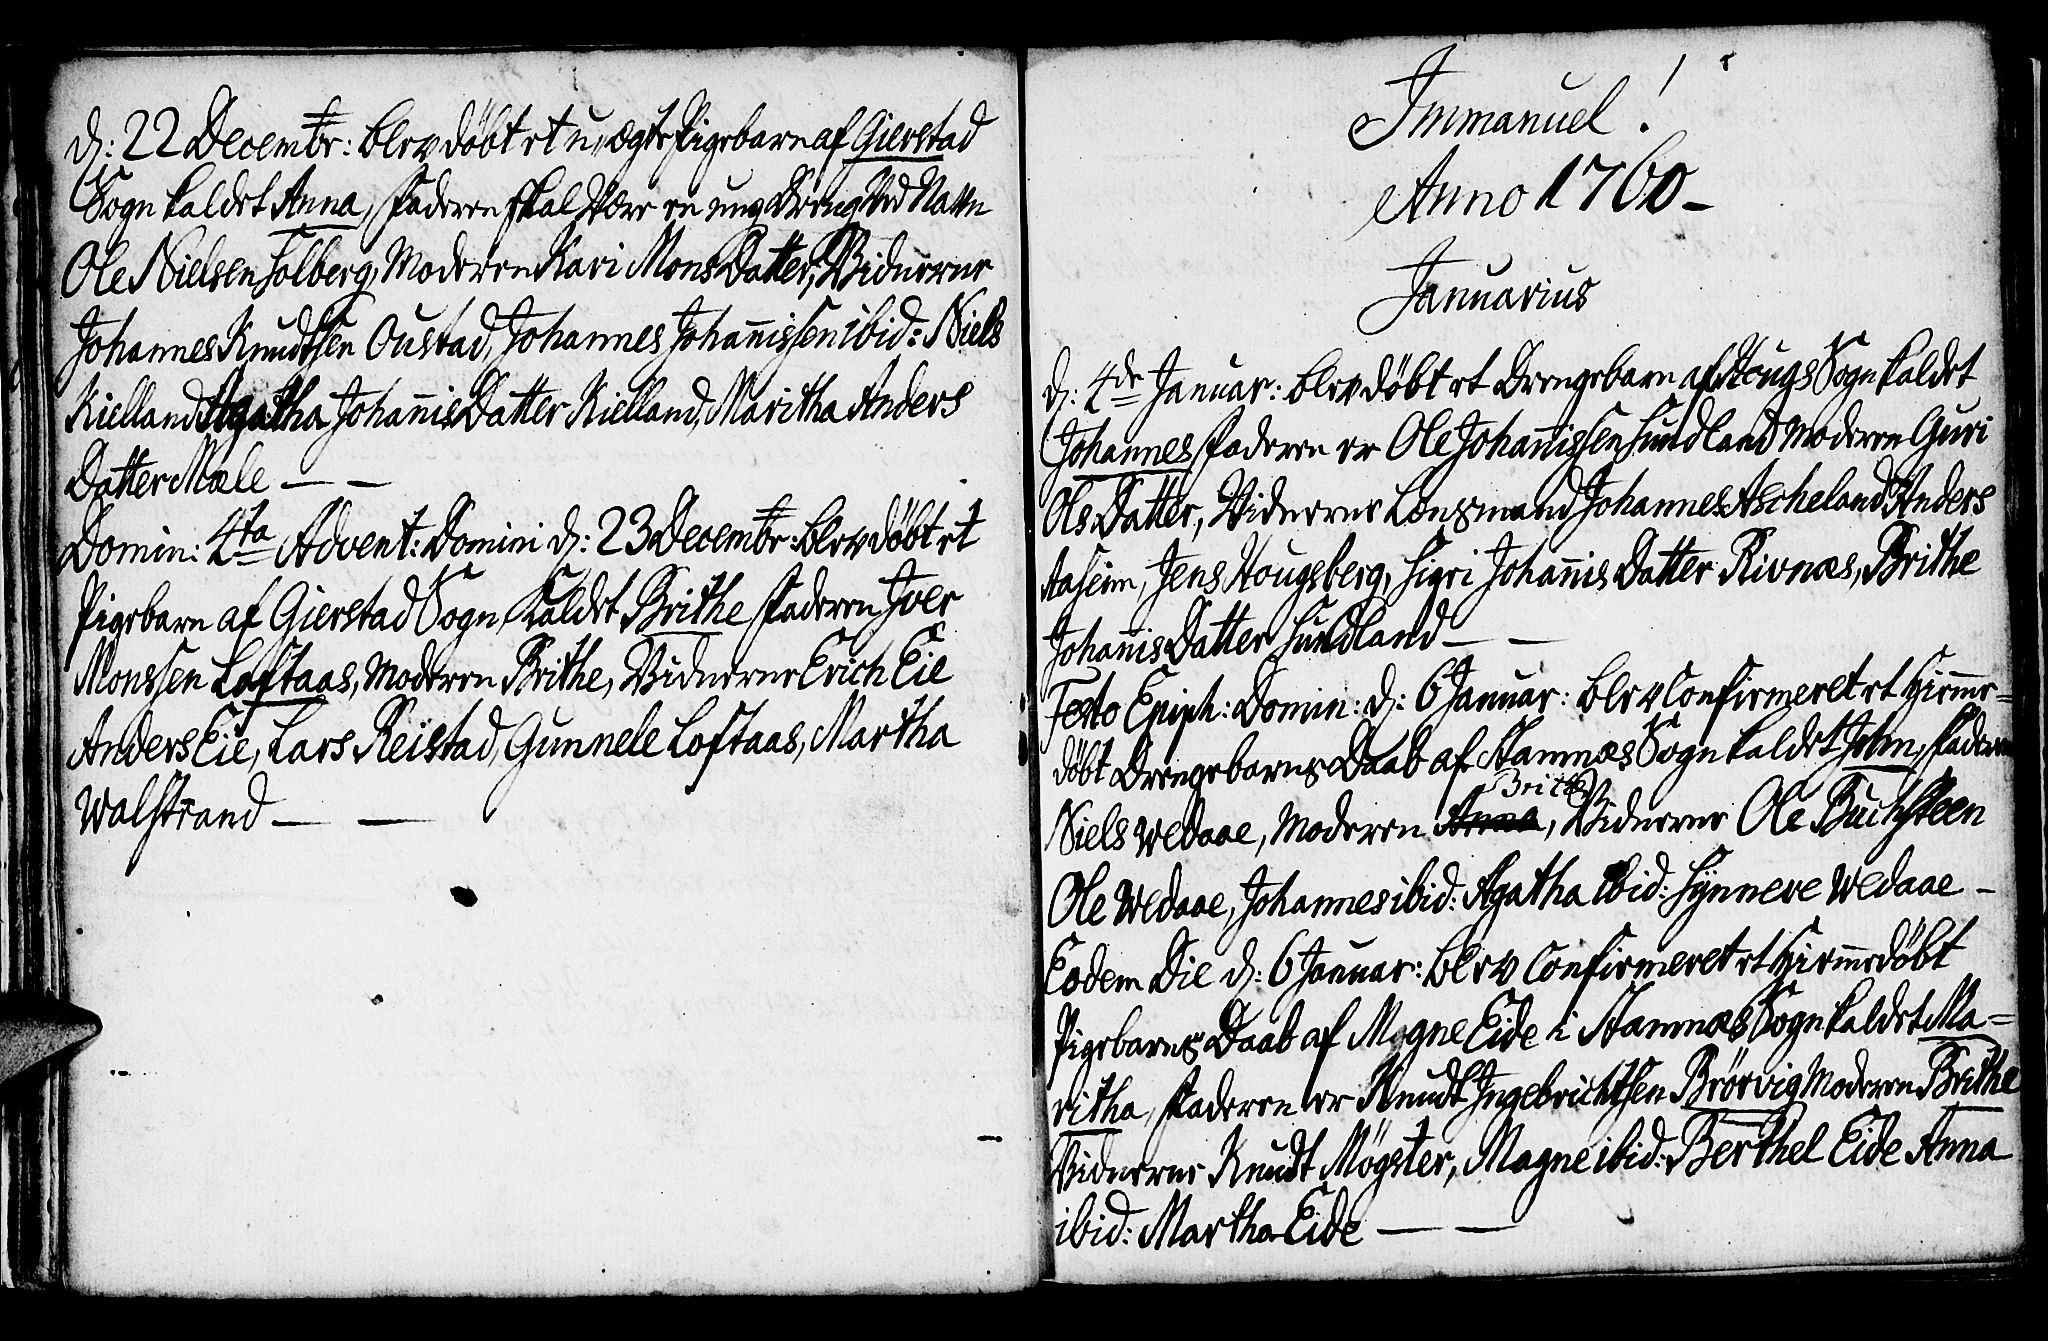 d: 22 Decembr: blev döbt et u-ægte Pigebarn af Gierstad
Sogn kaldet Anna, Faderen skal være en ung Dreng ved Navn
Ole Nielsen Solberg, Moderen Kari Mons Datter, Vidnerne
Johannes Knudtsen Oustad, Johannes Johañissen ibid: Niels
Kielland Agatha Johañis Datter Kielland, Maritha Anders
Datter Mæle — —
Domin: 4ta Advent: Domini d: 23 Decembr: blev döbt et
Pigebarn af Gierstad Sogn, kaldet Brithe, Faderen Iver
Monssen Loftaas, Moderen Brithe, Vidnerne Erich Eie
Anders Eie, Lars Reistad, Gunnele Loftaas, Martha
Walstrand — —
Immanuel!
Anno 1760 —
Januarius
d: 4de Januar: blev döbt et Drengebarn af Hougs Sogn kaldet
Johannes, Faderen er Ole Johañissen Sundland Moderen Guri
Ols Datter, Vidnerne Lensmand Johannes Ascheland Anders
Aaseim, Jens Hougsberg, Sigri Johañis Datter Rivnæs, Brithe
Johañis Datter Sundland — —
Festo Epiph: Domin: d: 6 Januar: blev Confirmeret et hieme=
döbt Drengebarns Daab af Stamnæs Sogn kaldet John, Faderen
Niels Wedaae, Moderen Anna Brithe, Vidnerne Ole Buchsteen
Ole Wedaae, Johannes ibid: Agatha ibid: Synneve Wedaae —
Eodem Die d: 6 Januar: blev Confirmeret et hiemedöbt
Pigebarns Daab af Magne Eide i Stamnæs Sogn kaldet Ma=
ritha, Faderen er Knudt Ingebrichtsen Brörvig Moderen Brithe
Vidnerne Knudt Mögster, Magne ibid: Berthel Eide Anna
ibid: Martha Eide — —